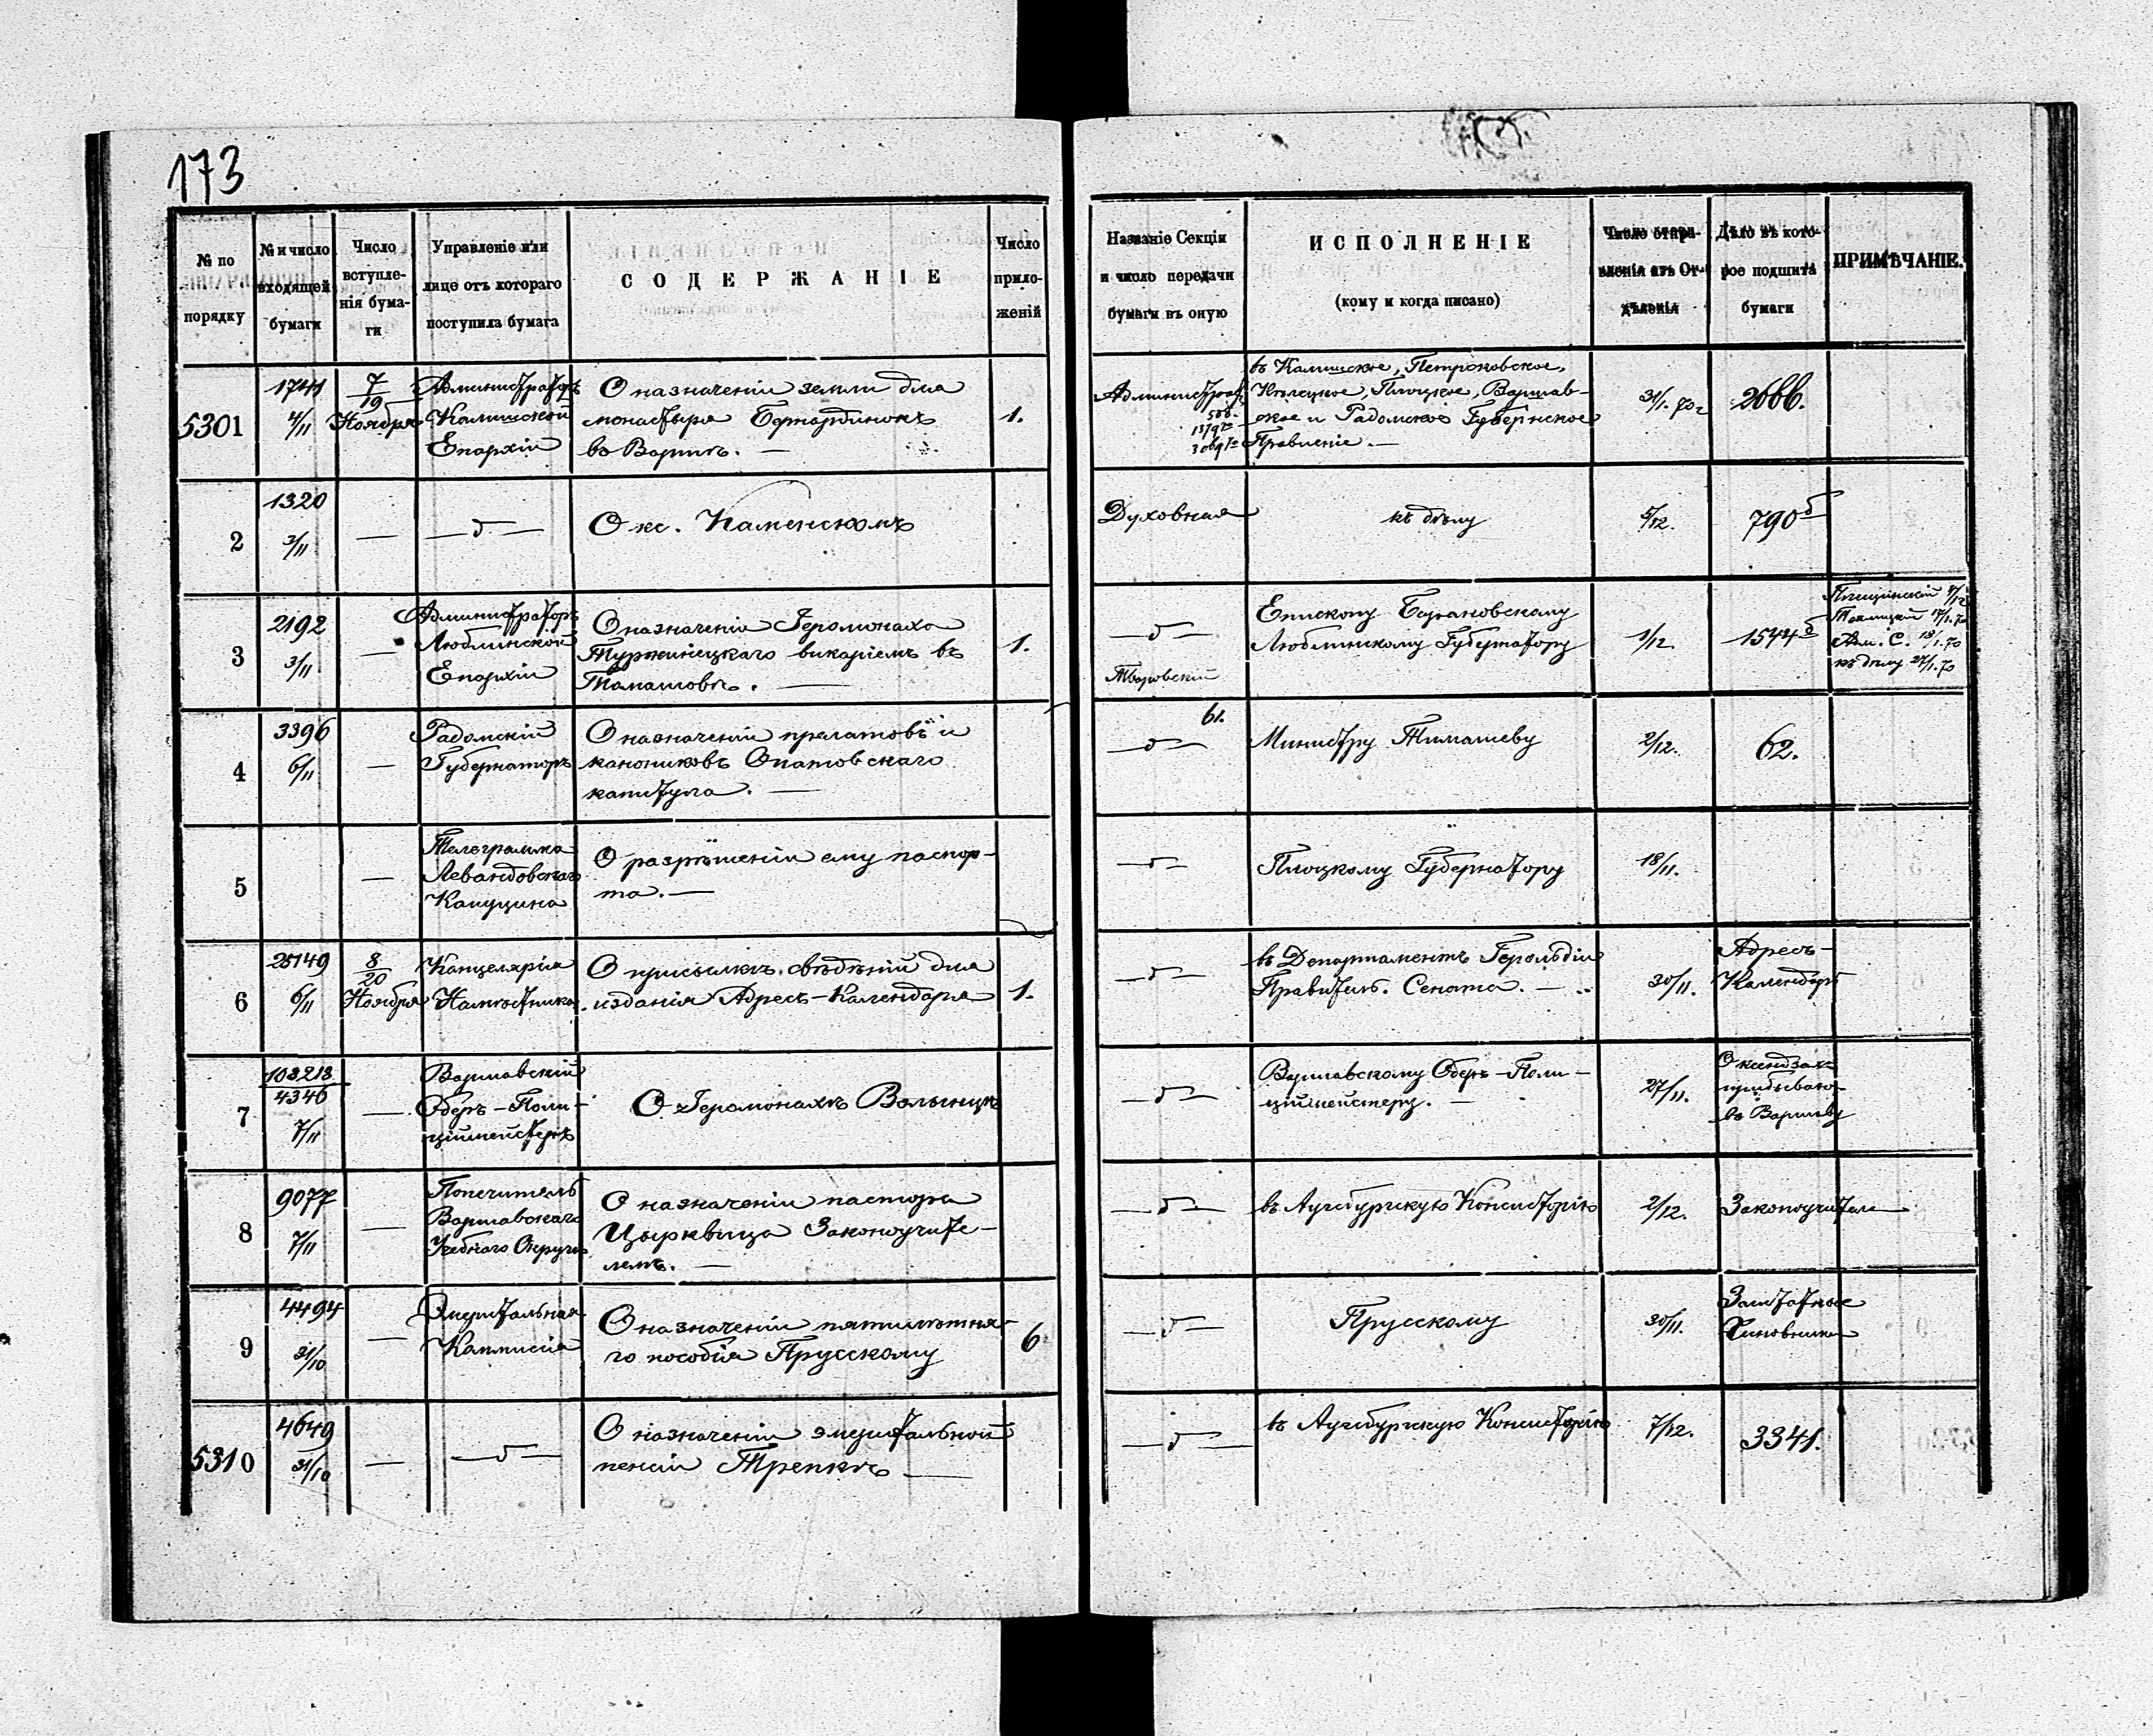 173
№ по порядку
№ и число входящей бумаги
Число вступле-
нія бума-
ги
Управленіе или
лице отъ котораго
поступила бумага
СОДЕРЖАНІЕ
Число
прило-
женій
Названіе Секціи
и число передачи
бумаги въ оную
ИСПОЛНЕНІЕ
(кому и когда писано)
Число отпра-
вленія изъ От-
дѣленія
Дѣло въ кото-
рое подшита
бумаги
ПРИМѢЧАНІЕ.
5301
1741
4/11
7/19
Ноября
Администраторъ
Калишской
Епархіи
О назначеніи земли для
монастыря Бернардинокъ
въ Вартѣ. —
1.
въ Калишское, Петроковское,
Кѣлецкое, Плоцкое, Варшав-
ское и Радомское Губернское
Правленіе. —
31/1. 70 г
2
1320
3/11
—
— " —
О кс. Каменскомъ
Духовная
къ дѣлу
5/12.
790 б
3
2192
3/11
—
Администраторъ
Люблинской
Епархіи
О назначеніи Іеромонаха
викаріемъ въ
Томашовъ. —
1.
— " —
Епископу Барановскому
Люблинскому Губернатору
1/12.
1544 б
Адм. С. 19/1.70
къ дѣлу 27/1.70
4
3396
6/11
—
Радомскій
Губернаторъ
О назначеніи прелатовъ и
канониковъ Опатовскаго
капитула. —
61.
— " —
Министру Тимашеву
2/12.
62.
5
—
Телеграмма
Левандовскаго
Капуцина
О разрѣшеніи ему паспор-
та. —
— " —
Плоцкому Губернатору
18/11.
6
25149
6/11
8/20
Ноября
Канцелярія
Намѣстника.
О присылкѣ свѣдѣній для
изданія Адресъ-Календаря
1.
— " —
въ Департаментъ Герольдіи
Правител. Сената. —
30/11.
Адресъ-
Календарь
7
103,213
4346
7/11
—
Варшавскій
Оберъ-Поли-
ціймейстеръ
О Іеромонахѣ Волынцѣ
— " —
Варшавскому Оберъ-Поли-
ціймейстеру. —
27/11.
О ксендзахъ
въ Варшаву
8
9077
7/11
—
Попечитель
Варшавскаго
Учебнаго Округа
О назначеніи пастора
Цырквица Законоучите-
лемъ. —
— " —
въ Аугсбургскую Консисторію
2/12.
Законоучители
9
4494
31/10
—
Эмеритальная
Коммисія
О назначеніи пятилѣтня-
го пособія Прусскому
6
— " —
Прусскому
30/11.
Заштатные
Чиновники
5310
4649
31/10
—
— " —
О назначеніи эмеритальной
пенсіи Трепкѣ —
— " —
въ Аугсбургскую Консисторію
7/12.
3341.